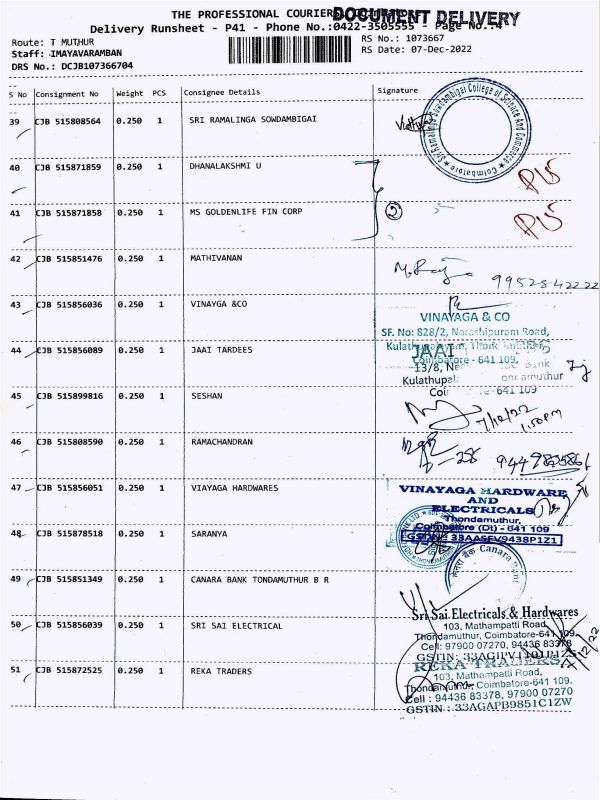 THE PROFESSIONAL COURIERS
DOCUMENT DELIVERY
Delivery Runsheet - P41 - Phone No.:0422-3505555 - Page No.:4
Route: T MUTHUR
RS No.: 1073667
Staff: IMAYAVARAMBAN
RS Date: 07-Dec-2022
DRS No.: DCJB107366704
S No Consignment No Weight PCS Consignee Details Signature
39 CJB 515808564 0.250 1 SRI RAMALINGA SOWDAMBIGAI
Sri Ramalinga Sowdambigai College of Science And Commerce
Coimbatore
40 CJB 515871859 0.250 1 DHANALAKSHMI U
41 CJB 515871858 0.250 1 MS GOLDENLIFE FIN CORP
2
42 CJB 515851476 0.250 1 MATHIVANAN
43 CJB 515856036 0.250 1 VINAYGA &CO
VINAYAGA & CO
SF. No: 828/2, Narashipuram Road,
Coimbatore - 641 109.
44 CJB 515856089 0.250 1 JAAI TARDEES
JAAI
45 CJB 515899816 0.250 1 SESHAN
7/12/22
1.50PM
46 CJB 515808590 0.250 1 RAMACHANDRAN
47 CJB 515856051 0.250 1 VIAYAGA HARDWARES
VINAYAGA HARDWARE
AND
ELECTRICALS
Thondamuthur,
Coimbatore (Dt) - 641 109
GSTIN: 33AASFV9438P1Z1
48 CJB 515878518 0.250 1 SARANYA
49 CJB 515851349 0.250 1 CANARA BANK TONDAMUTHUR B R
केनरा बैंक Canara Bank
50 CJB 515856039 0.250 1 SRI SAI ELECTRICAL
Sri Sai Electricals & Hardwares
103, Mathampatti Road,
Thondamuthur, Coimbatore-641 109.
Cell: 97900 07270, 94436 83378
51 CJB 515872525 0.250 1 REKA TRADERS
REKA TRADERS
103, Mathampatti Road,
Thondamuthur, Coimbatore-641 109.
Cell : 94436 83378, 97900 07270
GSTIN : 33AGAPB9851C1ZW
7/12/22